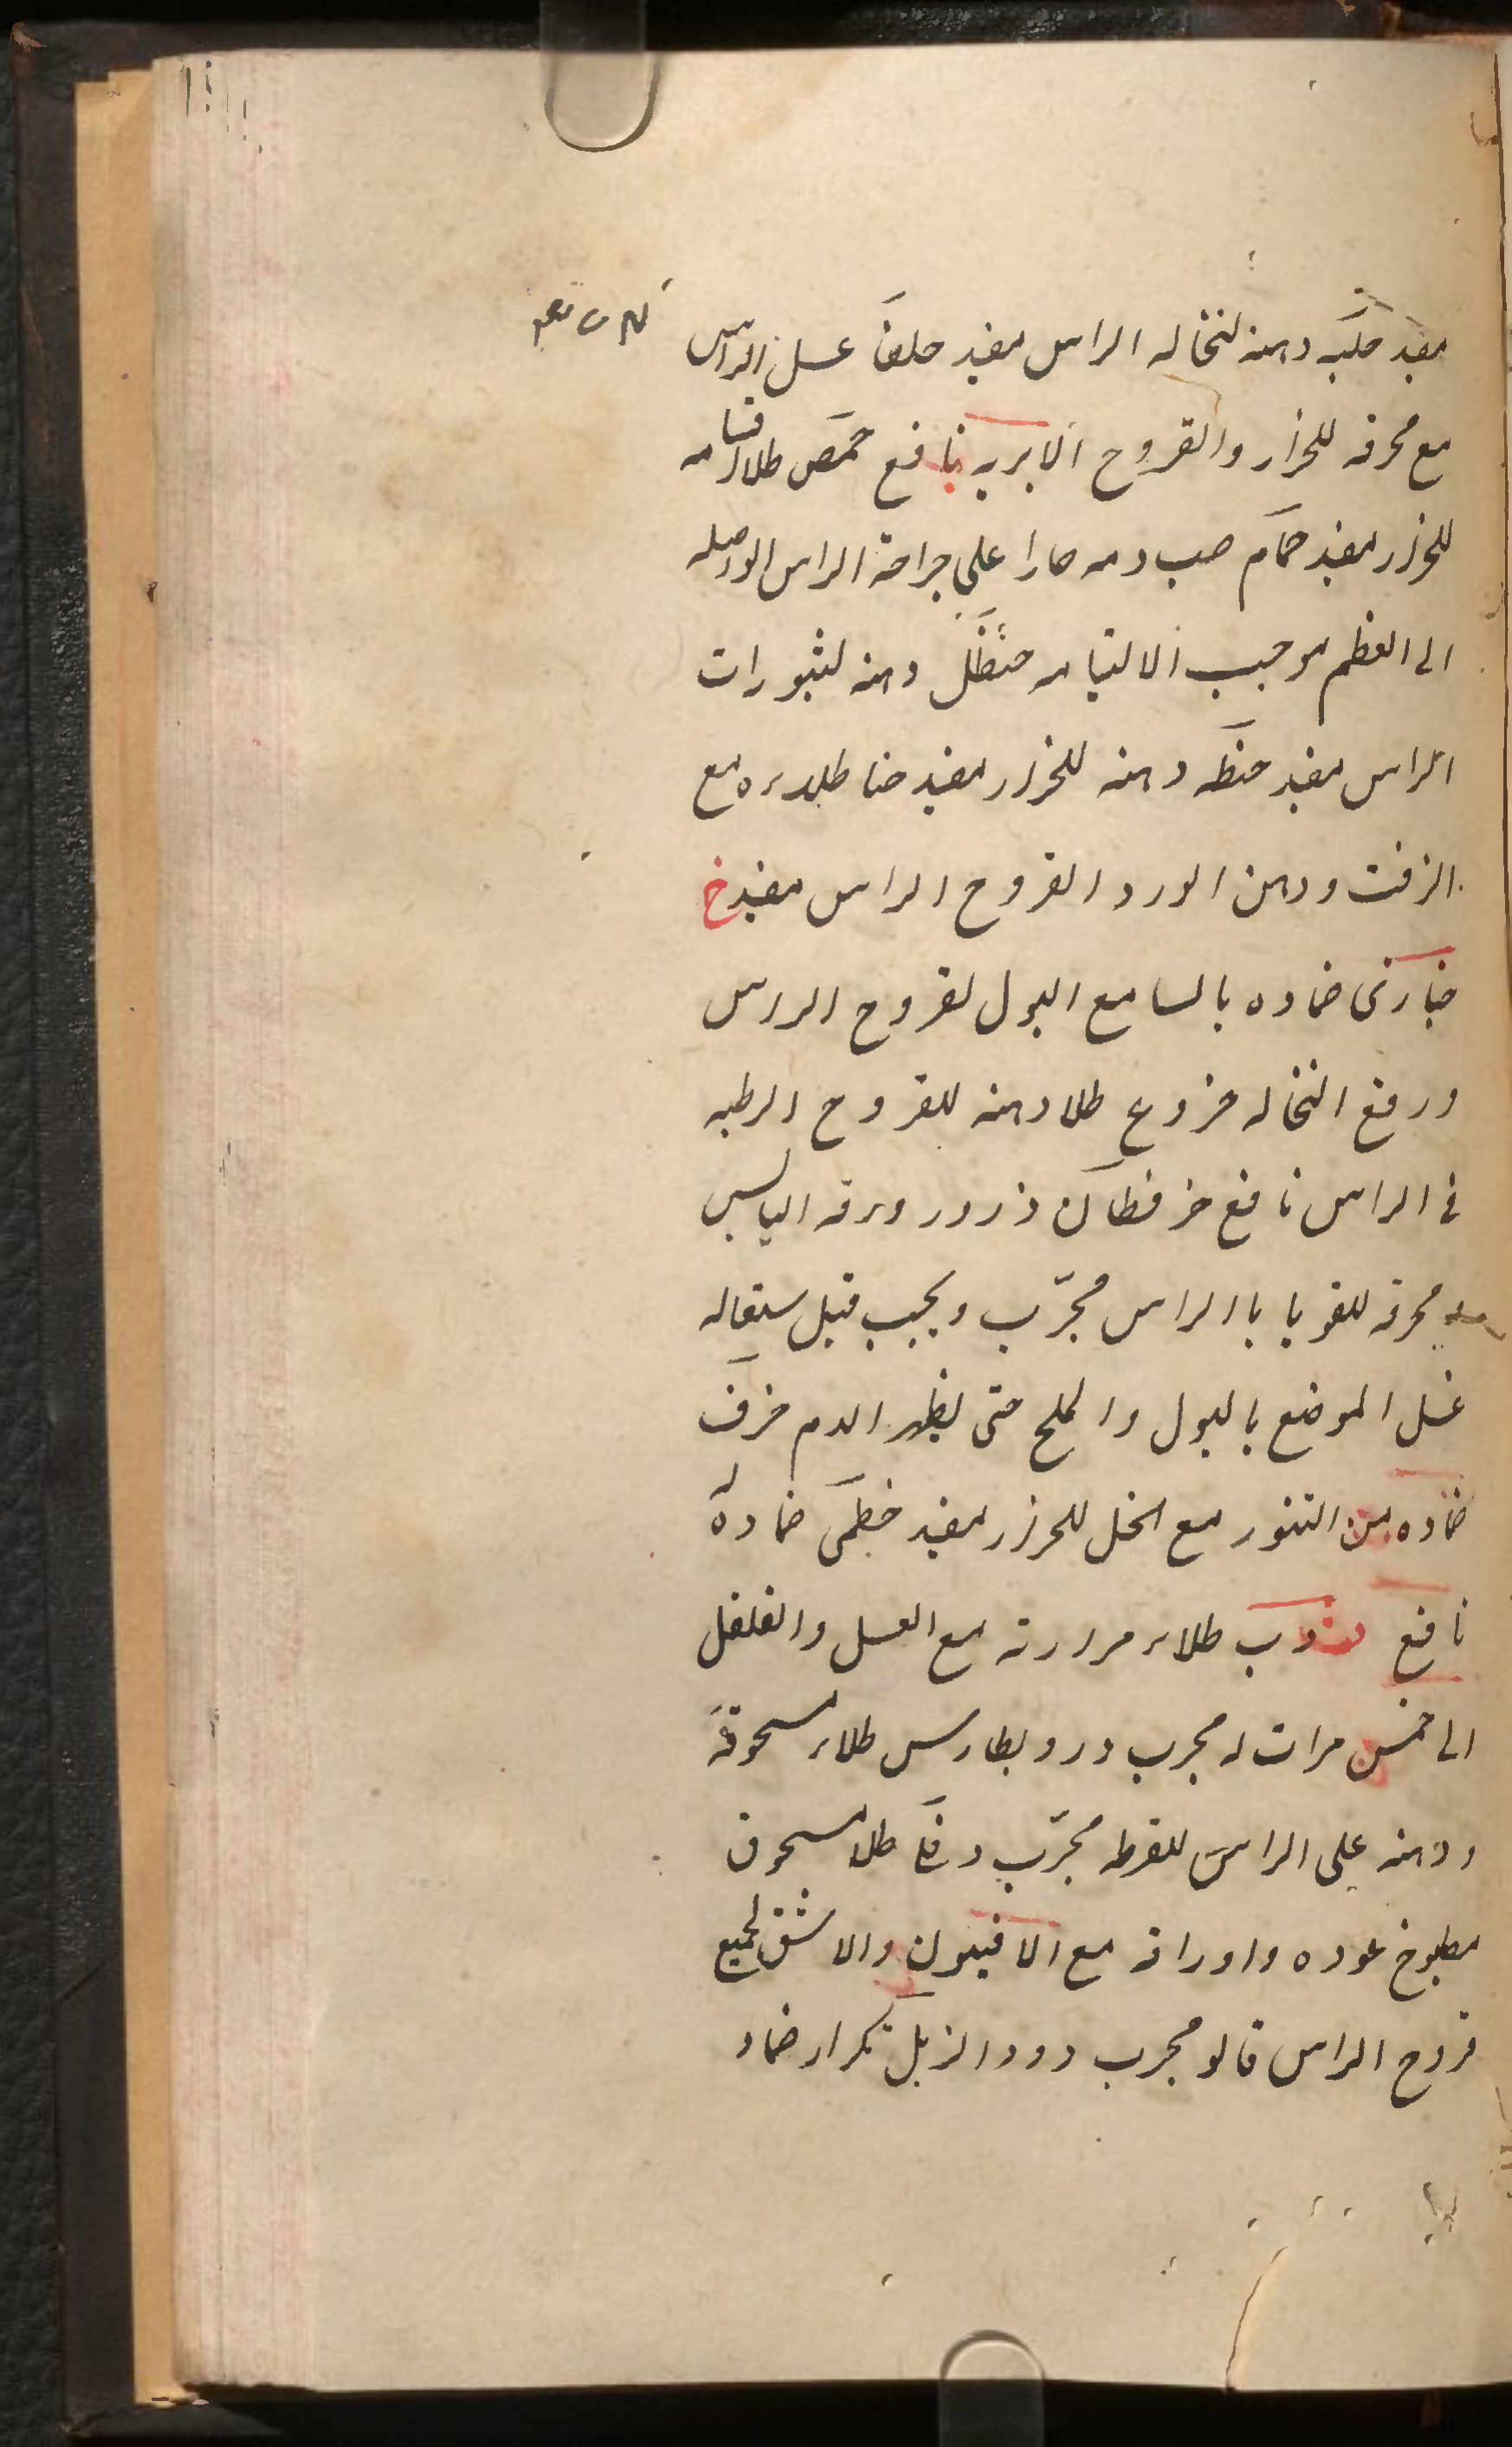 مفيد حلبه دهنه لنخاله الراس مفيد حلفا غسل الراس
مع محرقه للحزاز والقروح الابريه نافع حمص طلا اقسامه
للحزاز مفيد حمام صب دمه حارا على جراحة الراس الواصله
الى العظم موجب الالتيام حنظل دهنه لثبورات
الراس مفيد حنطه دهنه للحزاز مفيد حنا طلاءه مع
الزفت ودهن الورد القروح الراس مفيد خ
خبازى ضماده بالسا مع البول لقروح الراس
ورفع النخاله خروع طلا دهنه للقروح الرطبه
فى الراس نافع خرفطان ذرور ورقه اليابس
محرقه للقوبا با الراس مجرّب ويجب قبل ستعاله
غسل الموضع بالبول والملح حتى يظهر الدم خزف
ضماده من التنور مع الخل للحزاز مفيد خطمى ضماده
نافع طلاء مرارته مع العسل والفلفل
الى خمس مرات له مجرب دردبطارس طلاء مسحوقه
ودهنه على الراس للقرطه مجرّب طلا مسحوق
مطبوخ عوده واوراقه مع الافيون والاشق لجميع
قروح الراس قالو مجرب دود الزبل تكرار ضماد